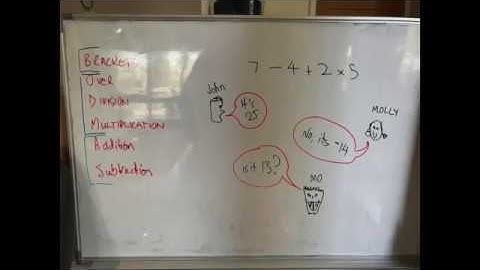 BRACKETS
OVER
DIVISION
MULTIPLICATION
Addition
Subtraction
7 - 4 + 2 x 5
John
It's
25
MOLLY
No, its -14
is it 13?
MO